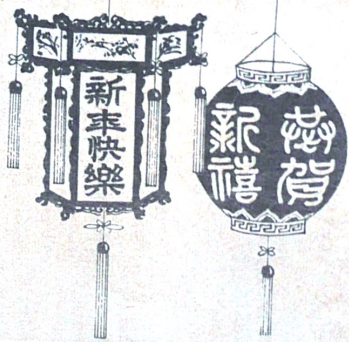 新年快樂
恭賀
新禧